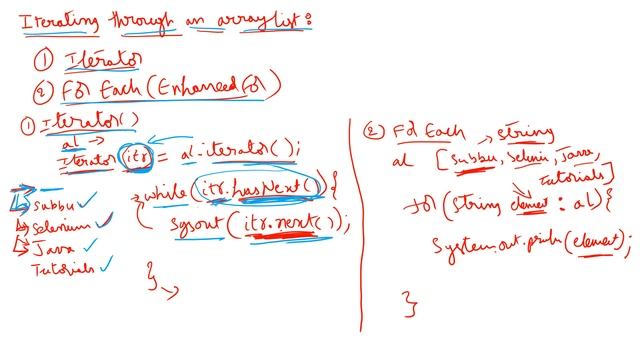 Iterating through an arraylist:
① Iterator
② For Each (Enhanced for)
① Iterator()
al →
Iterator itr = al.iterator();
while (itr.hasNext()) {
sysout (itr.next());
}
Subbu ✓
Selenium ✓
Java ✓
Tutorials ✓
② For Each → string
al [Subbu, Selenium, Java,
Tutorials]
for (String element : al) {
System.out.println(element);
}